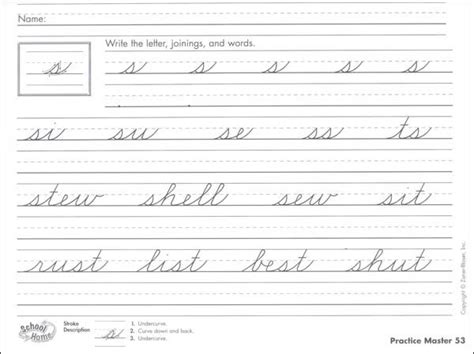 Name:
Write the letter, joinings, and words.
s s s s s s s
si su se ss ts
stew shell sew sit
rust list best shut
School Home
Stroke Description
s
1. Undercurve.
2. Curve down and back.
3. Undercurve.
Practice Master 53
Copyright © Zaner-Bloser, Inc.